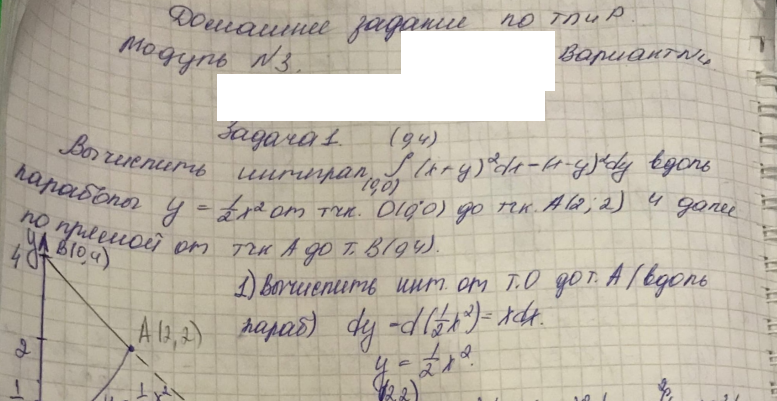 Домашнее задание по ТПиР.
Модуль №3. Вариант №4
Задача 1.
Вычислить интеграл ∫ (0,0) (0,4) (x+y)²dx-(x-y)²dy вдоль
параболы y = 1/2 x² от тчк. O(0;0) до тчк. A(2;2) и далее
по прямой от тчк A до т. B(0,4).
y
4 B(0,4)
1) Вычислить инт. от т. O до т. A (вдоль
параб) dy = d(1/2 x²) = xdx.
A(2,2)
2 y = 1/2 x².
1 1/2 x² (2,2)